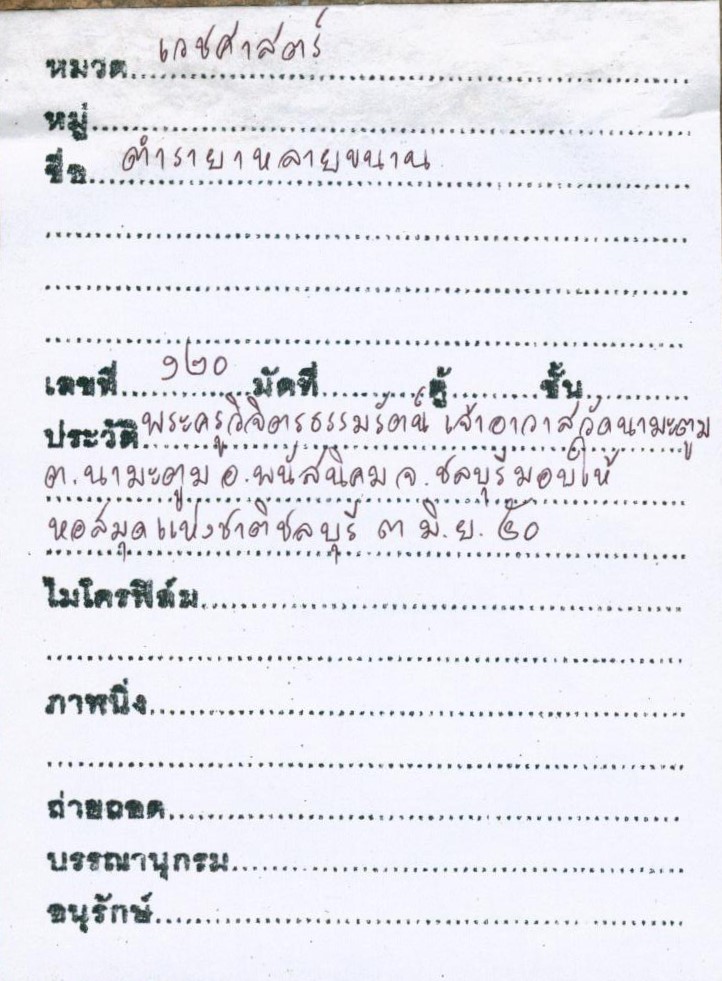 หมวด เวชศาสตร์
หมู่
ชื่อ ตำรายาหลายขนาน
เลขที่ ๑๒๐ มัดที่ ตู้ ชั้น
ประวัติ พระครูวิจิตรธรรมรัตน์ เจ้าอาวาสวัดนามะตูม
ต.นามะตูม อ.พนัสนิคม จ.ชลบุรี มอบให้
หอสมุดแห่งชาติชลบุรี ๓ มิ.ย. ๕๐
ไมโครฟิล์ม
ภาพนิ่ง
ถ่ายถอด
บรรณานุกรม
อนุรักษ์